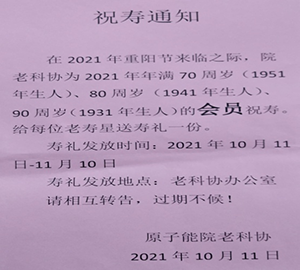 祝寿通知
在 2021 年重阳节来临之际，院
老科协为 2021 年年满 70 周岁（1951
年生人）、80 周岁（1941 年生人）、
90 周岁（1931 年生人）的会员祝寿。
给每位老寿星送寿礼一份。
寿礼发放时间：2021 年 10 月 11
日-11 月 10 日
寿礼发放地点：老科协办公室
请相互转告，过期不候！
原子能院老科协
2021 年 10 月 11 日